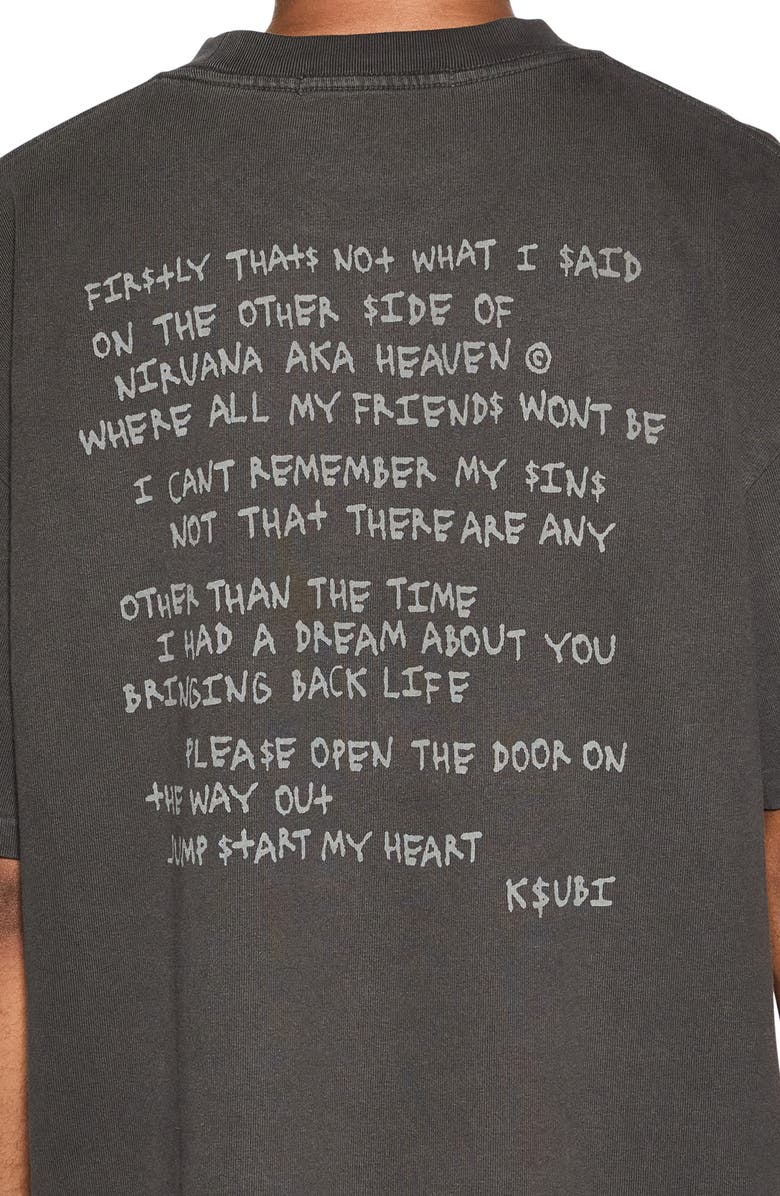 FIR$tLY THAt$ NOt WHAT I $AID
ON THE OTHER $IDE OF
NIRVANA AKA HEAVEN ©
WHERE ALL MY FRIEND$ WONT BE
I CANT REMEMBER MY $IN$
NOT THAt THERE ARE ANY
OTHER THAN THE TIME
I HAD A DREAM ABOUT YOU
BRINGING BACK LIFE
PLEA$E OPEN THE DOOR ON
tHE WAY OUt
JUMP $tART MY HEART
K$UBI